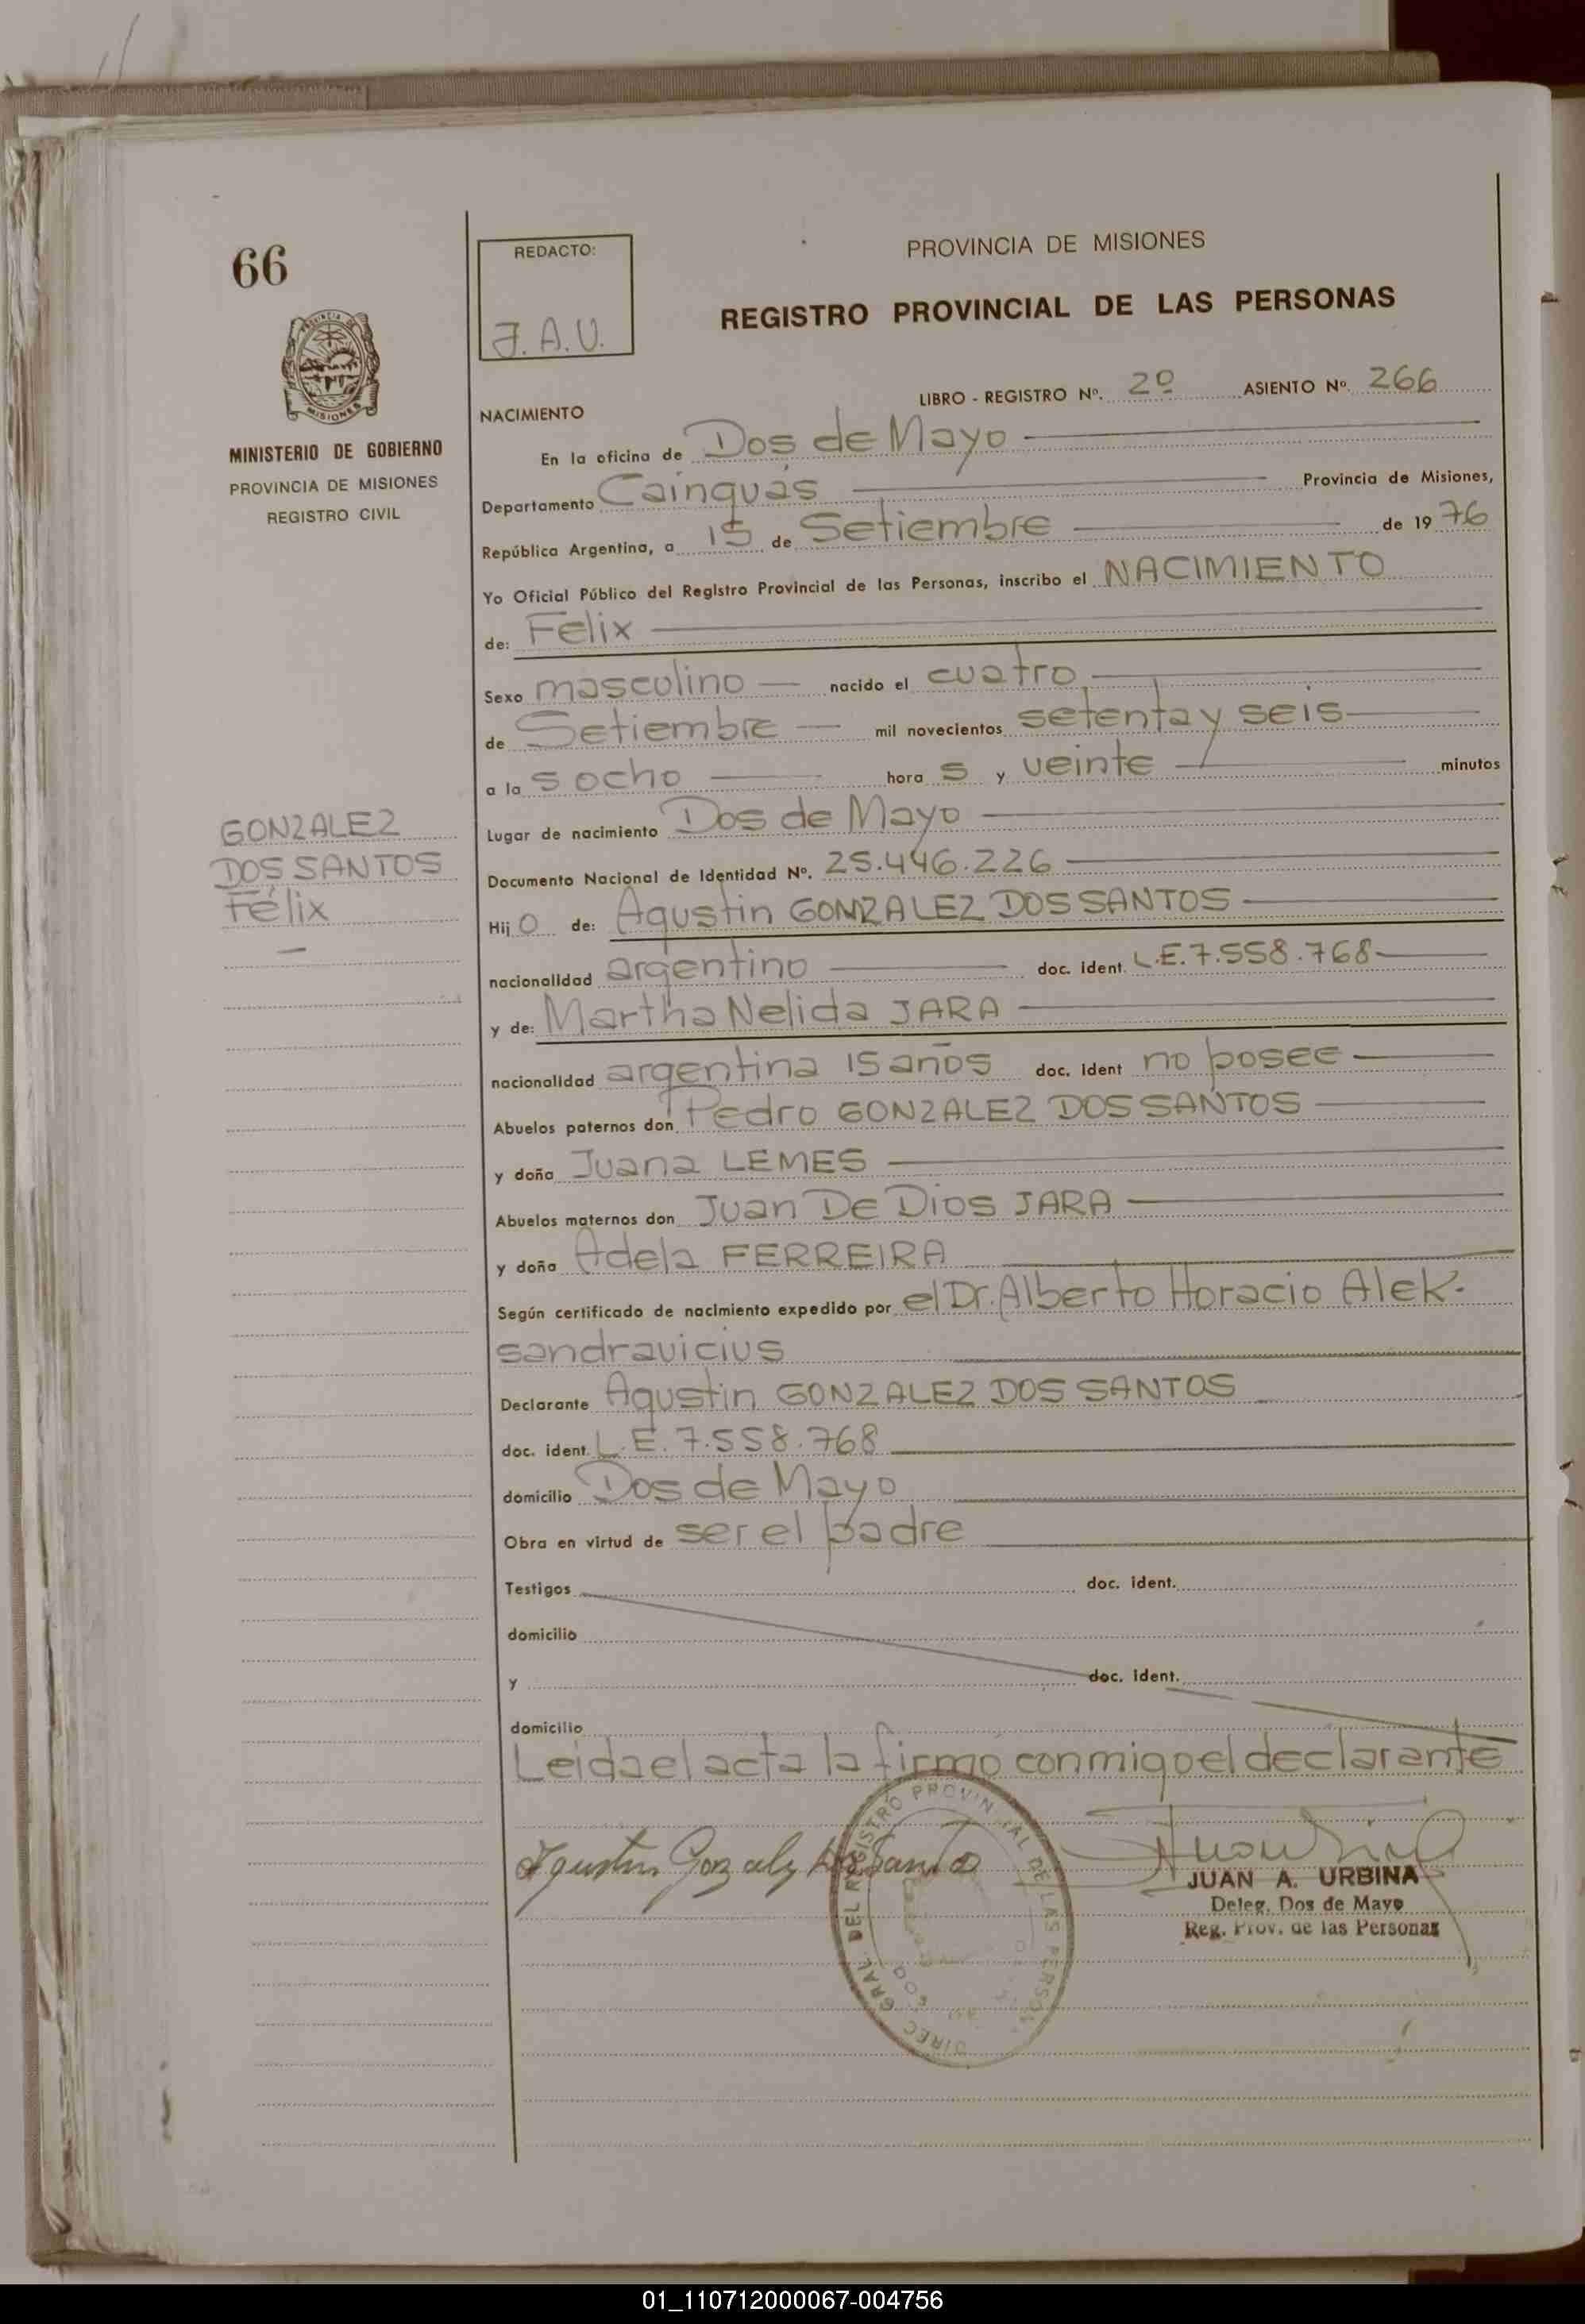 66
REDACTO:
J. A. U.
PROVINCIA DE MISIONES
REGISTRO PROVINCIAL DE LAS PERSONAS
MISIONES
MINISTERIO DE GOBIERNO
PROVINCIA DE MISIONES
REGISTRO CIVIL
LIBRO - REGISTRO Nº. 2º ASIENTO Nº. 266
NACIMIENTO
En la oficina de Dos de Mayo
Departamento Cainguás Provincia de Misiones,
República Argentina, a 15 de Setiembre de 19 76
Yo Oficial Público del Registro Provincial de las Personas, inscribo el NACIMIENTO
de: Felix
Sexo masculino nacido el cuatro
de Setiembre mil novecientos setenta y seis
a la s ocho hora s y veinte minutos
GONZALEZ
DOS SANTOS
Félix
Lugar de nacimiento Dos de Mayo
Documento Nacional de Identidad Nº. 25.446.226
Hij o de: Agustin GONZALEZ DOS SANTOS
nacionalidad argentino doc. ident. L.E. 7.558.768
y de: Martha Nelida JARA
nacionalidad argentina 15 años doc. ident no posee
Abuelos paternos don Pedro GONZALEZ DOS SANTOS
y doña Juana LEMES
Abuelos maternos don Juan De Dios JARA
y doña Adela FERREIRA
Según certificado de nacimiento expedido por el Dr. Alberto Horacio Alek-
sandravicius
Declarante Agustin GONZALEZ DOS SANTOS
doc. ident. L.E. 7.558.768
domicilio Dos de Mayo
Obra en virtud de ser el padre
Testigos doc. ident.
domicilio
y doc. ident.
domicilio
Leida el acta la firmó conmigo el declarante
Agustin Gonzalez Dos Santos
DIREC. GRAL. DEL REGISTRO PROVINCIAL DE LAS PERSONAS
JUAN A. URBINA
Deleg. Dos de Mayo
Reg. Prov. de las Personas
01_110712000067-004756